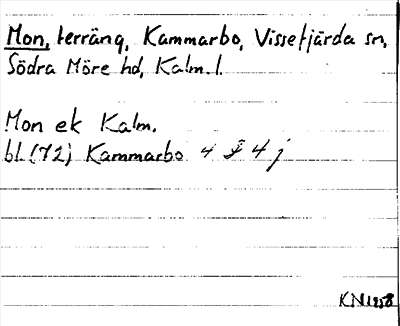 Mon, terräng, Kammarbo, Vissefjärda sn,
Södra Möre hd, Kalm. l.
Mon ek Kalm.
bl. (72) Kammarbo 4 I 4 j
KN 1958